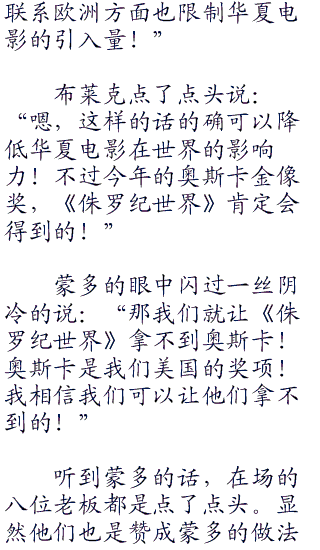 联系欧洲方面也限制华夏电
影的引入量！”
布莱克点了点头说：
“嗯，这样的话的确可以降
低华夏电影在世界的影响
力！不过今年的奥斯卡金像
奖，《侏罗纪世界》肯定会
得到的！”
蒙多的眼中闪过一丝阴
冷的说：“那我们就让《侏
罗纪世界》拿不到奥斯卡！
奥斯卡是我们美国的奖项！
我相信我们可以让他们拿不
到的！”
听到蒙多的话，在场的
八位老板都是点了点头。显
然他们也是赞成蒙多的做法